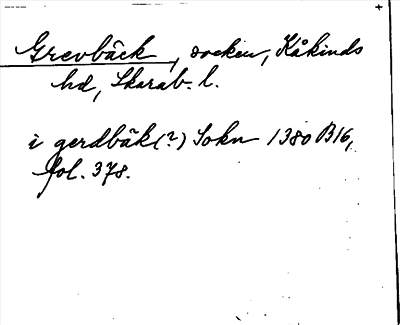 Grevbäck, socken, Kåkinds
hd, Skarab. l.
i gerdbäk (?) Sokn 1380 B16,
fol. 378.